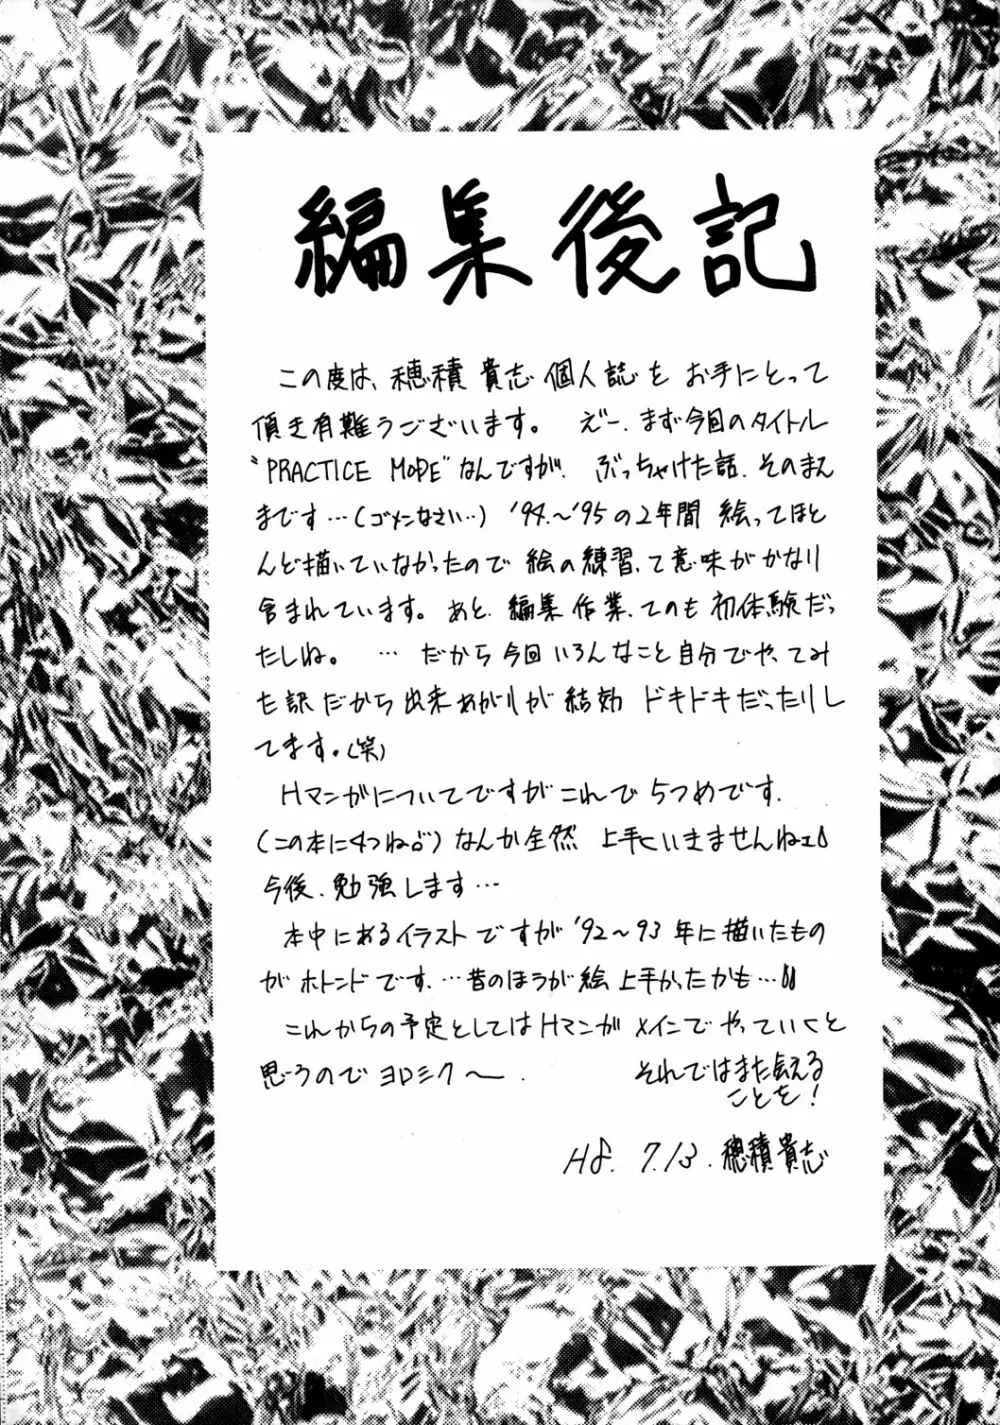 編集後記
この度は、穂積貴志個人誌をお手にとって
頂き有難うございます。 えー、まず今回のタイトル
"PRACTICE MODE"なんですが、ぶっちゃけた話、そのまん
まです…(ゴメンなさい…) '94.〜'95の2年間 絵ってほと
んど描いていなかったので 絵の練習、て意味がかなり
含まれています。あと、編集作業、てのも初体験だっ
たしね。 … だから今回いろんなこと自分でや、てみ
た訳だから出来あがりが結効 ドキドキだったりし
てます。(笑)
Hマンガについてですがこれで5つめです.
(この本に4つね) なんか全然 上手くいきませんねェ
今後、勉強します…
本中にあるイラストですが'92〜93年に描いたもの
がホトンドです.…昔のほうが絵上手かったかも…
これからの予定としてはHマンガメインでやっていくと
思うのでヨロシク〜.
それではまた会える
ことを!
H8. 7.13. 穂積貴志